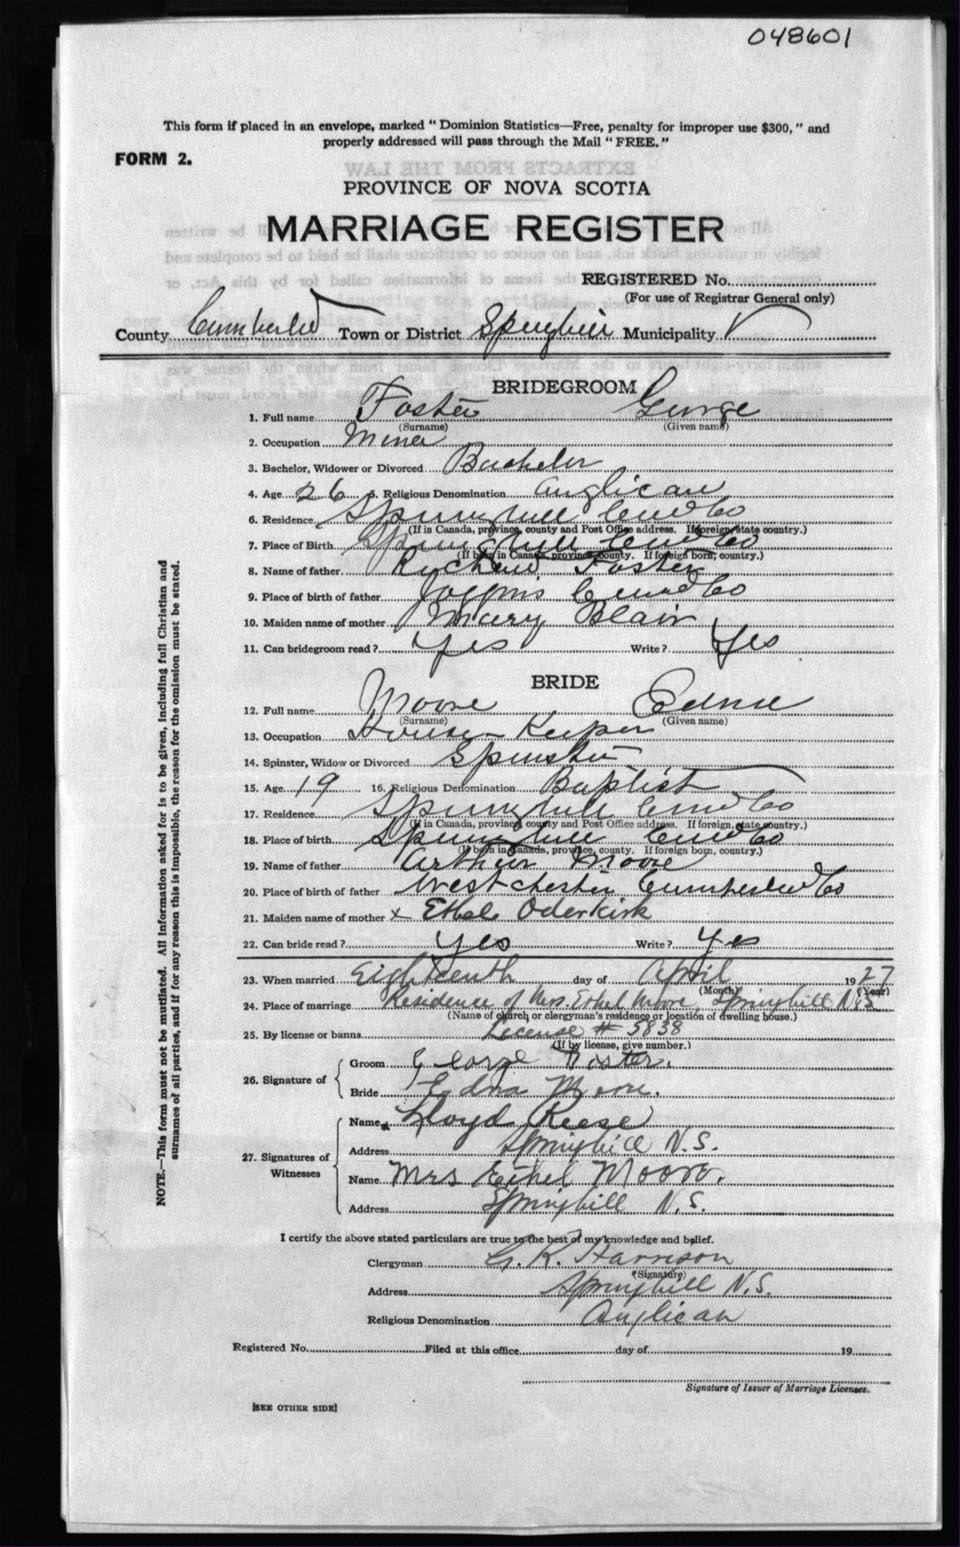 048601
This form if placed in an envelope, marked " Dominion Statistics—Free, penalty for improper use $300, " and
properly addressed will pass through the Mail " FREE. "
FORM 2.
PROVINCE OF NOVA SCOTIA
MARRIAGE REGISTER
REGISTERED No.
(For use of Registrar General only)
County Cumberland Town or District Springhill Municipality
BRIDEGROOM
1. Full name Foster George
(Surname) (Given name)
2. Occupation Miner
3. Bachelor, Widower or Divorced Bachelor
4. Age 26 5. Religious Denomination Anglican
6. Residence Springhill Cumb Co
(If in Canada, province, county and Post Office address. If foreign, state country.)
7. Place of Birth Springhill Cumb Co
(If born in Canada, province, county. If foreign born, country.)
8. Name of father Foster
9. Place of birth of father Joggins Cumb Co
10. Maiden name of mother Mary Blair
11. Can bridegroom read? Yes Write? Yes
BRIDE
12. Full name Moore
(Surname) (Given name)
13. Occupation House Keeper
14. Spinster, Widow or Divorced Spinster
15. Age 19 16. Religious Denomination Baptist
17. Residence Springhill Cumb Co
(If in Canada, province, county and Post Office address. If foreign, state country.)
18. Place of birth Springhill Cumb Co
(If born in Canada, province, county. If foreign born, country.)
19. Name of father Arthur Moore
20. Place of birth of father Westchester Cumberland Co
21. Maiden name of mother x Ethel Oderkirk
22. Can bride read? Yes Write? Yes
23. When married Eighteenth day of April 1927
(Month) (Year)
24. Place of marriage Residence of Mrs. Ethel Moore, Springhill N.S.
(Name of church or clergyman's residence or location of dwelling house.)
25. By license or banns License # 5838
(If by license, give number.)
26. Signature of
Groom George Foster.
Bride Edna Moore.
27. Signatures of Witnesses
Name Lloyd Reese
Address Springhill N.S.
Name Mrs Ethel Moore.
Address Springhill N.S.
I certify the above stated particulars are true to the best of my knowledge and belief.
Clergyman G. K. Harrison
(Signature)
Address Springhill N.S.
Religious Denomination Anglican
Registered No. Filed at this office day of 19
Signature of Issuer of Marriage Licenses.
[SEE OTHER SIDE]
NOTE.—This form must not be mutilated. All information asked for is to be given, including full Christian and
surnames of all parties, and if for any reason this is impossible, the reason for the omission must be stated.